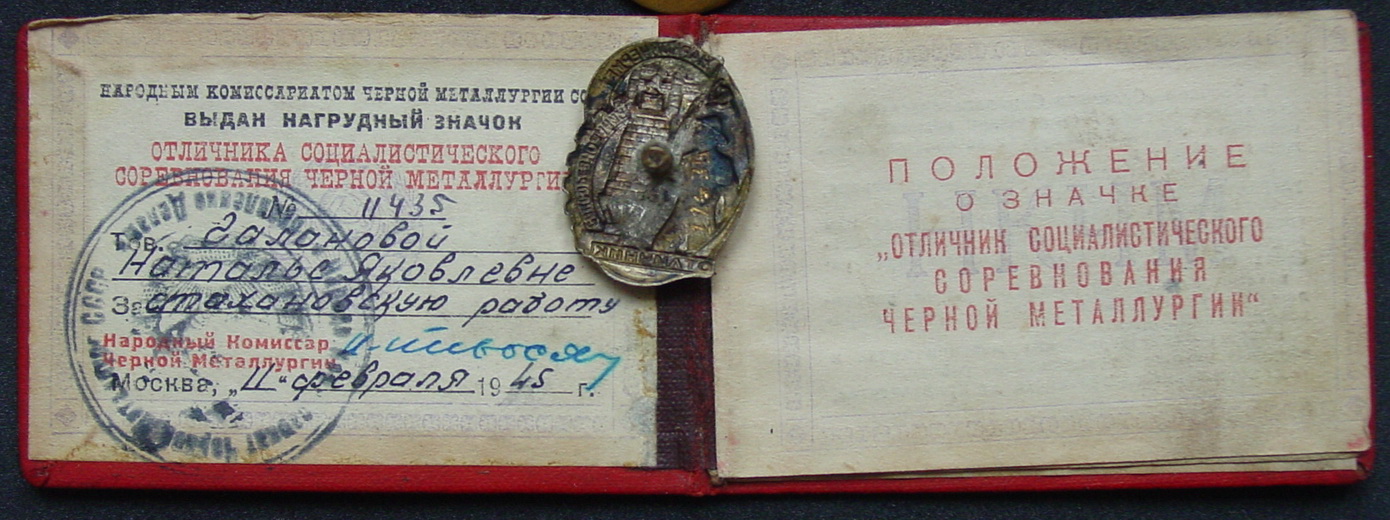 НАРОДНЫМ КОМИССАРИАТОМ ЧЕРНОЙ МЕТАЛЛУРГИИ
ВЫДАН НАГРУДНЫЙ ЗНАЧОК
ОТЛИЧНИКА СОЦИАЛИСТИЧЕСКОГО
СОРЕВНОВАНИЯ ЧЕРНОЙ МЕТАЛЛУРГИИ
№ 11435
Тов. Галановой
Наталье Яковлевне
За стахановскую работу
Народный Комиссар
Черной Металлургии
Москва, „11" февраля 1945 г.
ПОЛОЖЕНИЕ
О ЗНАЧКЕ
„ОТЛИЧНИК СОЦИАЛИСТИЧЕСКОГО
СОРЕВНОВАНИЯ
ЧЕРНОЙ МЕТАЛЛУРГИИ"